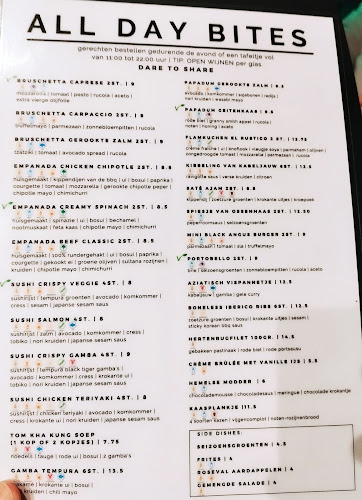 ALL DAY BITES
gerechten bestellen gedurende de avond of een tafeltje vol
van 11:00 tot 22:00 uur | TIP: OPEN WIJNEN per glas
DARE TO SHARE
BRUSCHETTA CAPRESE 2ST. | 9
mozzarella | tomaat | pesto | rucola | aceto |
extra vierge olijfolie
BRUSCHETTA CARPACCIO 2ST. | 9
truffelmayo | parmezaan | zonnebloempitten | rucola
BRUSCHETTA GEROOKTE ZALM 2ST. | 9
tzatziki | tomaat | avocado spread | rucola
EMPANADA CHICKEN CHIPOTLE 2ST. | 8.5
huisgemaakt | kippendijen van de bbq | ui | bosui | paprika |
courgette | tomaat | mozzarella | gerookte chipotle peper |
chipotle mayo | chimichurri
EMPANADA CREAMY SPINACH 2ST. | 8.5
huisgemaakt | spinazie | ui | bosui | bechamel |
nootmuskaat | feta kaas | chipotle mayo | chimichurri
EMPANADA BEEF CLASSIC 2ST. | 8.5
huisgemaakt | 100% rundergehakt | ui | bosui | paprika |
courgette | gekookt ei | groene olijven | sultana rozijnen |
kruiden | chipotle mayo | chimichurri
SUSHI CRISPY VEGGIE 4ST. | 8
sushirijst | tempura groenten | avocado | komkommer |
cress | sesam | japanse sesam saus
SUSHI SALMON 4ST. | 8
sushirijst | zalm | avocado | komkommer | cress |
tobiko | nori kruiden | japanse sesam saus
SUSHI CRISPY GAMBA 4ST. | 9
sushirijst | tempura black tiger gamba's |
avocado | komkommer | cress | krokante ui |
tobiko | nori kruiden | japanse sesam saus
SUSHI CHICKEN TERIYAKI 4ST. | 8
sushirijst | chicken teriyaki | avocado | komkommer |
cress | krokante ui | bosui | japanse sesam saus
TOM KHA KUNG SOEP
(1 KOP OF 2 KOPJES) | 7.75
roedels | taugé | rode ui | bosui | 2 gamba's
GAMBA TEMPURA 6ST. | 13.5
krokante ui | bosui |
chili mayo
PAPADUM GEROOKTE ZALM
avocado | komkommer | sojabonen | edija |
nori kruiden | wasabi mayo
PAPADUM GEITENKAAS
rode biet | granny smith appel | rucola |
noten | honing | aceto
FLAMKUCHEN EL RUSTICO | 12.75
KIBBELING VAN KABELJAUW
ravigotte saus | verse kruiden | citroen
SATÉ AJAM
kippendij | zoetzure groenten | krokante uitjes | kroepoek
SPIESJE VAN OSSENHAAS 2ST. | 12.50
peperroomsaus | seizoensgroenten
MINI BLACK ANGUS BURGER 2ST. | 9
spiesmaat | tomaat | sla | truffelmayo
PORTOBELLO 2ST. | 9
brie | seizoensgroenten | zonnebloempitten | rucola | aceto
AZIATISCH VISPANNETJE | 13.5
kabeljauw | gamba | gele curry
BONELESS IBERICO RIBS | 12.5
zoetzure groenten | bosui | krokante uitjes | sesam |
sticky korean bbq saus
HERTENBRUFILET 100GR. | 14.5
gebakken pastinaak | rode biet | rode portsaus
CRÈME BRÛLÉE MET VANILLE IJS
HEMELSE MODDER | 6
chocolademousse | chocoladesaus | meringue | chocolade krokantje
KAASPLANKJE | 11.5
4 soorten kazen | vijgencompote | noten-rozijnenbrood
SIDE DISHES:
SEIZOENSGROENTEN | 4.5
FRITES | 4
ROSEVAL AARDAPPELEN | 4
GEMENGDE SALADE | 4